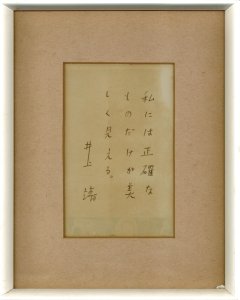 私には正確な
ものだけが美
しく見える。
井上靖